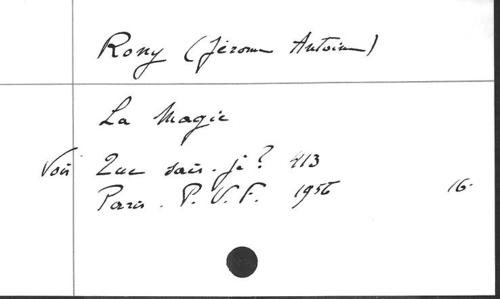 Rony (Jérome Antoine)
La Magie
Voir Que sais-je? 413
Paris. P.U.F. 1956 16.